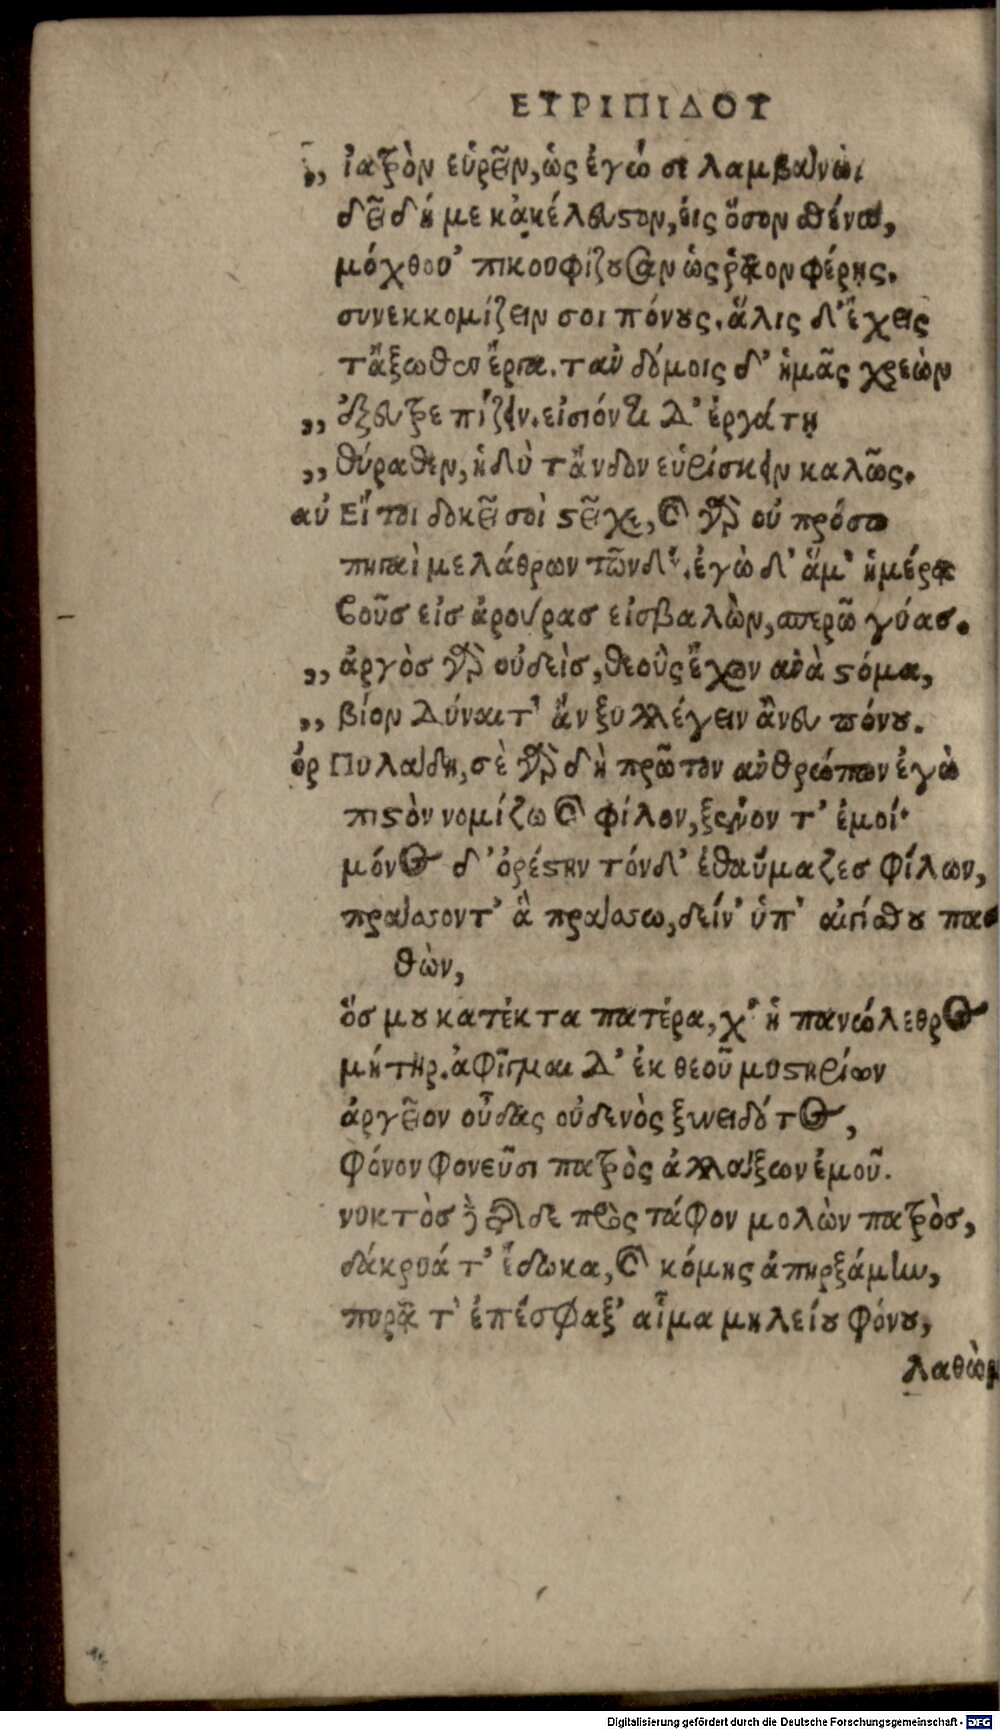 ΕΥΡΙΠΙΔΟΥ
„ ἰατρὸν εὑρεῖν, ὡς ἐγώ σε λαμβάνω
δεῖ δή με κἀκέλευστον, εἰς ὅσον σθένω,
μόχθου ’πικουφίζουσαν ὡς ῥᾷον φέρῃς.
συνεκκομίζειν σοι πόνους. ἅλις δ’ ἔχεις
τἄξωθεν ἔργα. τἀν δόμοις δ’ ἡμᾶς χρεὼν
„ ἐξευτρεπίζειν. εἰσιόντι δ’ ἐργάτῃ
„ θύραθεν, ἡδὺ τἄνδον εὑρίσκειν καλῶς.
αὐ Εἴ τοι δοκεῖ σοὶ στεῖχε, καὶ γὰρ οὐ πρόσω
πηγαὶ μελάθρων τῶνδε. ἐγὼ δ’ ἅμ’ ἡμέρᾳ
βοῦς εἰς ἀρούρας εἰσβαλὼν, σπερῶ γύας.
„ ἀργὸς γὰρ οὐδεὶς, θεοὺς ἔχων ἀνὰ στόμα,
„ βίον δύναιτ’ ἂν ξυλλέγειν ἄνευ πόνου.
ὀρ Πυλάδη, σὲ γὰρ δὴ πρῶτον ἀνθρώπων ἐγὼ
πιστὸν νομίζω καὶ φίλον, ξένον τ’ ἐμοί·
μόνος δ’ ὀρέστην τόνδ’ ἐθαύμαζες φίλων,
πράσσοντ’ ἃ πράσσω, δείν’ ὑπ’ αἰγίσθου πα
θὼν,
ὅς μου κατέκτα πατέρα, χ’ ἡ πανώλεθρος
μήτηρ. ἀφῖγμαι δ’ ἐκ θεοῦ μυστηρίων
ἀργεῖον οὖδας οὐδενὸς ξυνειδότος,
φόνον φονεῦσι πατρὸς ἀλλάξων ἐμοῦ.
νυκτὸς δὲ τῆσδε πρὸς τάφον μολὼν πατρὸς,
δάκρυά τ’ ἔδωκα, καὶ κόμης ἀπηρξάμην,
πυρᾷ τ’ ἐπέσφαξ’ αἷμα μηλείου φόνου,
λαθὼν